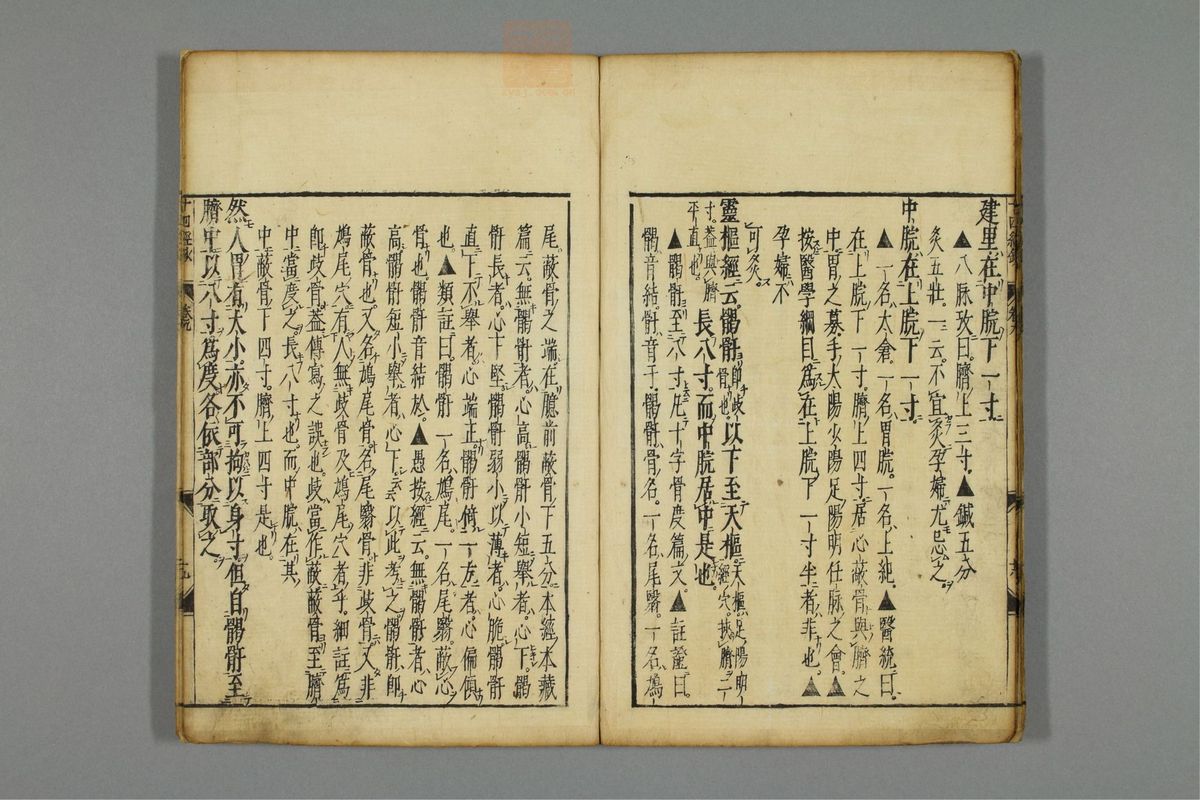 建里在中脘下一寸
▲八脉攷曰。臍上三寸。▲鍼五分
灸五壯。一云。不宜灸孕婦尤忌之。
中脘在上脘下一寸。
▲一名太倉。一名胃脘。一名上紀。▲醫統曰。
在上脘下一寸。臍上四寸。居心蔽骨與臍之
中。胃之募。手太陽少陽足陽明任脉之會。▲
按醫學綱目爲在上脘下一寸半者非也。▲
孕婦不
可灸。
靈樞經云。髑骬卽歧骨也。以下至天樞。天樞。足陽明經穴。挾臍二
寸。蓋與臍平直也。長八寸。而中脘居中是也。
▲髑骬至八寸。凡十字骨度篇文。▲註證曰。
髑音結。骬音于。髑骬骨名。一名尾翳。一名鳩
尾。蔽骨之端。在臆前蔽骨下五分。本經本藏
篇云。無髑骬者。心高。髑骬小短舉者。心下。髑
骬長者。心下堅。髑骬弱小以薄者。心脆。髑骬
直下不舉者。心端正。髑骬倚一方者。心偏傾
也。▲類註曰。髑骬一名鳩尾。一名尾翳。蔽心
骨也。髑骬音結於。▲愚按經云。無髑骬者。心
高。髑骬短小舉者。心下云云。以此考之。髑骬。卽
蔽骨也。又名鳩尾骨。名尾翳骨。非歧骨。又非
鳩尾穴。有人無歧骨及鳩尾穴者乎。細註爲
卽歧骨。蓋傳寫之誤也。歧當作蔽。蔽骨至臍
中。當度之。長八寸也。而中脘在其
中。蔽骨下四寸。臍上四寸是也。
然人胃有大小。亦不可拘以身寸。但自髑骬至
臍中。以八寸爲度。各依部分取之。